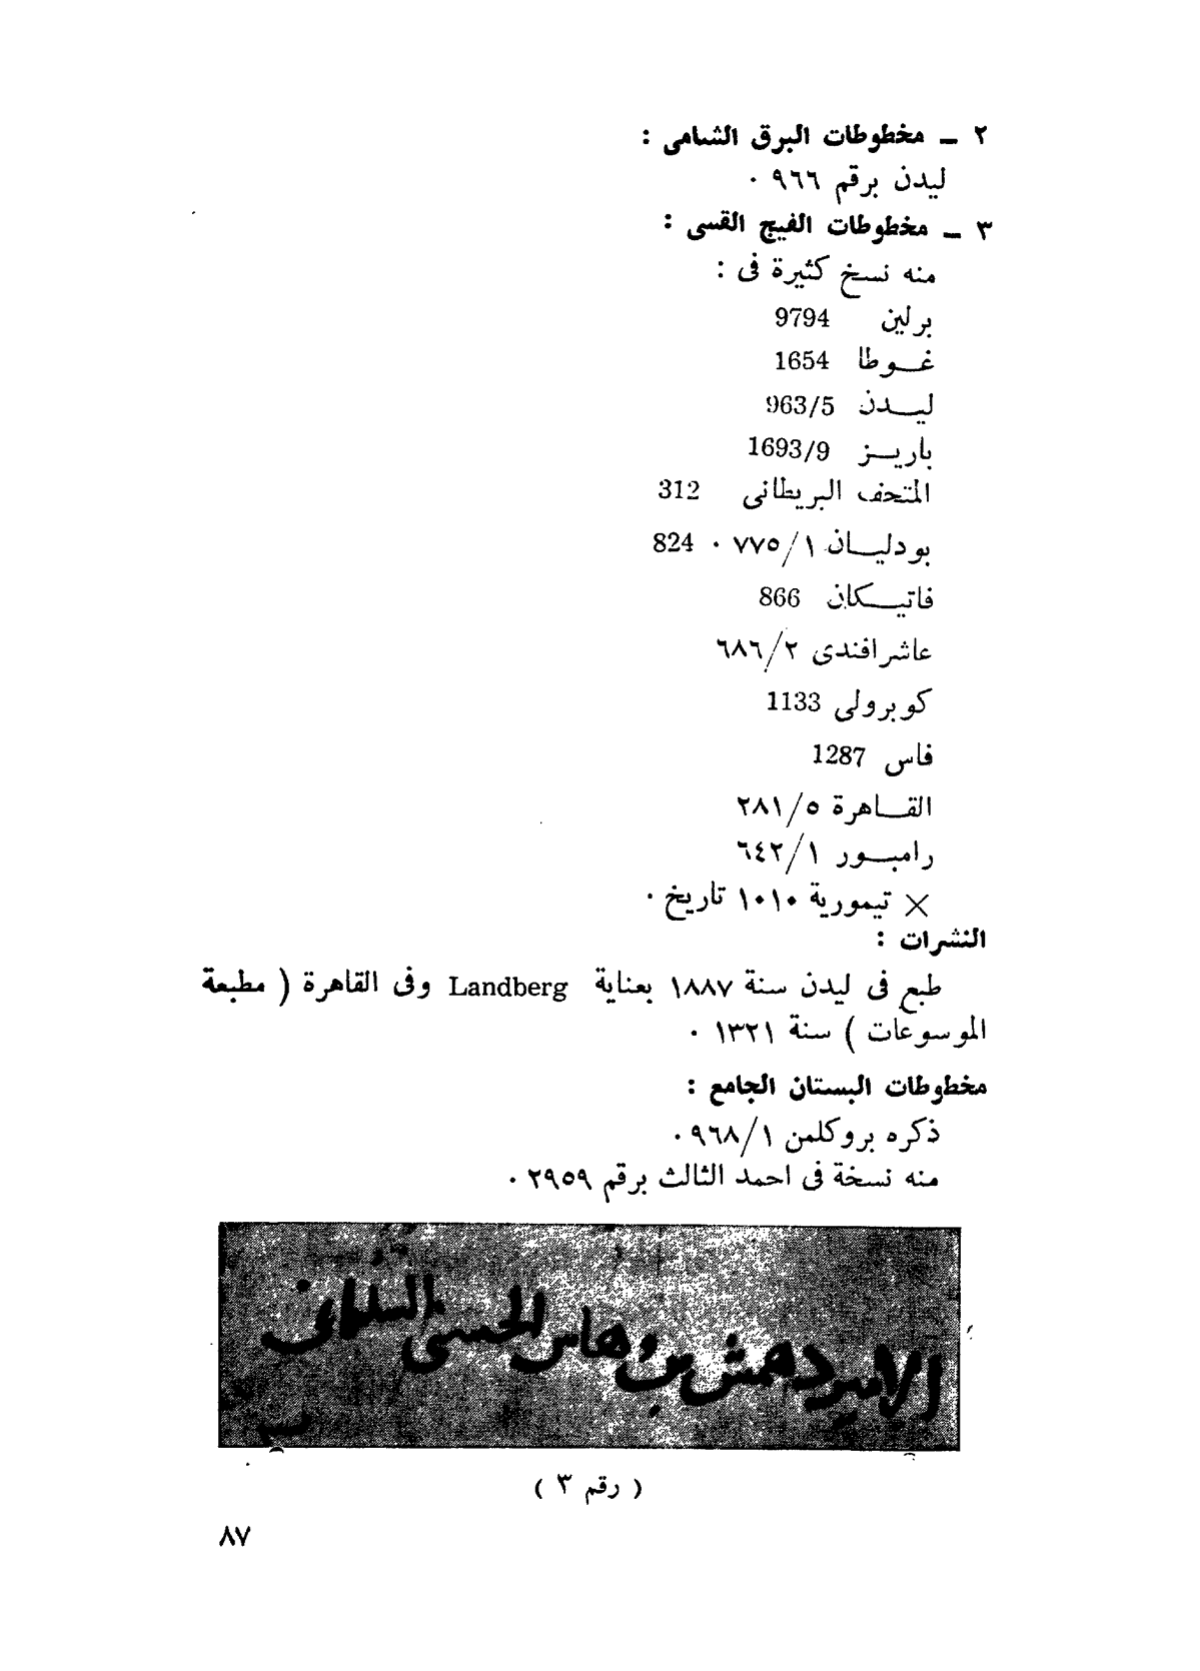 ٢ ـ مخطوطات البرق الشامى :
ليدن برقم ٩٦٦ ٠
٣ ـ مخطوطات الفيج القسى :
منه نسخ كثيرة فى :
برلين 9794
غـوطا 1654
ليـدن 963/5
باريـز 1693/9
المتحف البريطانى 312
بودليـان ١/٧٧٥ ٠ 824
فاتيـكان 866
عاشر افندى ٢/٦٨٦
كوبرولى 1133
فاس 1287
القـاهرة ٥/٢٨١
رامبـور ١/٦٤٢
× تيمورية ١٠١٠ تاريخ ٠
النشرات :
طبع فى ليدن سنة ١٨٨٧ بعناية Landberg وفى القاهرة ( مطبعة
الموسوعات ) سنة ١٣٢١ ٠
مخطوطات البستان الجامع :
ذكره بروكلمن ١/٩٦٨ ٠
منه نسخة فى احمد الثالث برقم ٢٩٥٩ ٠
الامير دهمش بن وهاس الحسنى السليمانى
( رقم ٣ )
٨٧